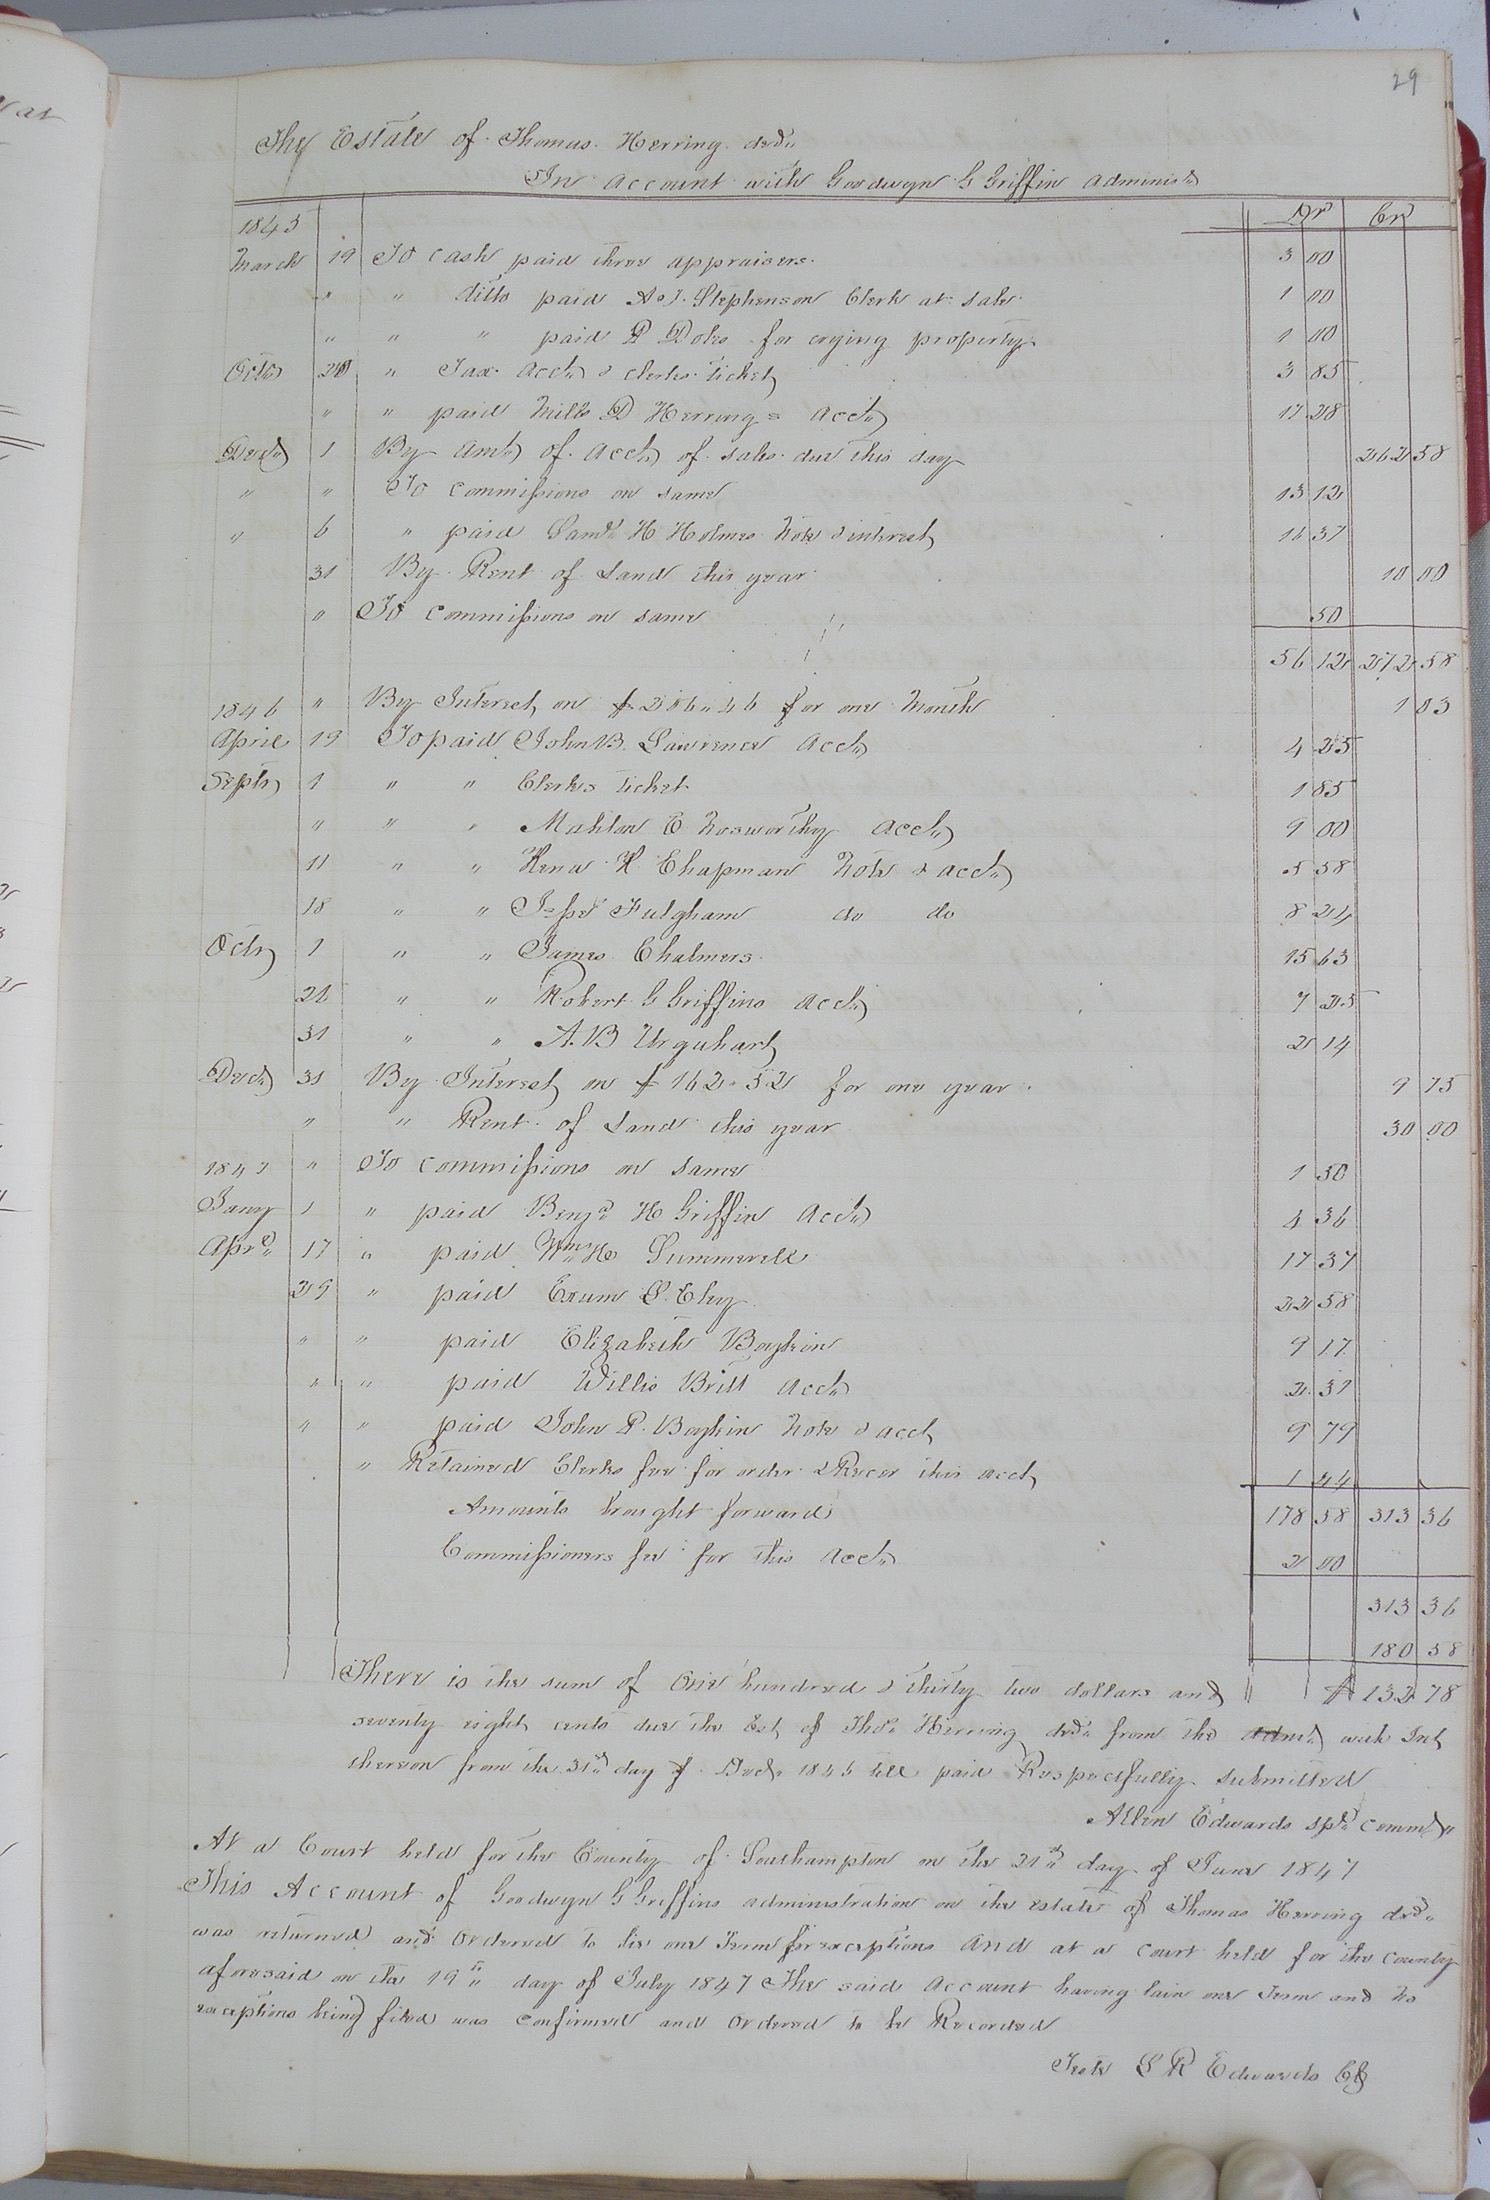 29
The Estate of Thomas Herring decd.
In account with Goodwyn G Griffin administr
Dr Cr
1845
March 19 To cash paid three appraisers. 3 00
" " ditto paid A. J. Stephenson Clerk at sale 1 00
" " " paid P Doles for crying property 1 00
Octo 20 " Tax acct. & clerks ticket 3 85
" " paid Mills D Herring = acct. 17 28
Decr 1 By amt. of acct. of sales due this day 262 58
" " To commissions on same 13 12
" 6 " paid Saml. H Holmes Note & interest 16 37
31 By Rent of Land this year 10 00
" To commissions on same 50
56 12 272 58
" By Interest on $206.46 for one Month 1 03
1846
April 19 To paid John B. Lawrence acct. 4 25
Septr 1 " " Clerks ticket 1 85
" " " Mahlon E Nosworthy acct. 9 00
11 " " Kena H Chapman Note & acct. 5 58
18 " " Jesse Fulgham do do 8 24
Octr 1 " " James Chalmers 15 63
26 " " Robert G Griffins acct. 7 25
31 " " A. B Urquhart 2 14
Decr 31 By Interest on $162.52 for one year 9 75
" " Rent of Land this year 30 00
" To commissions on same 1 50
1847
Jany 1 " paid Benja. H Griffin acct. 4 36
Aprl. 17 " paid Wm. H Summerell 17 37
29 " paid Exum S. Eley 22 58
" " paid Elizabeth Boykin 9 17
" " paid Willis Britt acct. 2 37
" " paid John P. Boykin Note & acct 9 79
" Retained Clerks fee for order & Recor this acct 1 44
Amounts brought forward 178 58 313 36
Commissioners fee for this acct. 2 00
313 36
180 58
There is the sum of One hundred & thirty two dollars and $132 78
seventy eight cents due the Est. of Thos. Herring decd. from the admr. with Int
thereon from the 31st day of Decr. 1846 till paid Respectfully submitted
Allen Edwards spl. commr.
At a Court held for the County of Southampton on the 21st day of June 1847
This Account of Goodwyn G Griffins administration on the estate of Thomas Herring decd.
was returned and Ordered to lie one Term for exceptions and at a court held for the County
aforesaid on the 19th day of July 1847 The said account having lain one Term and no
exceptions being filed was confirmed and ordered to be Recorded
Teste L R Edwards Clk